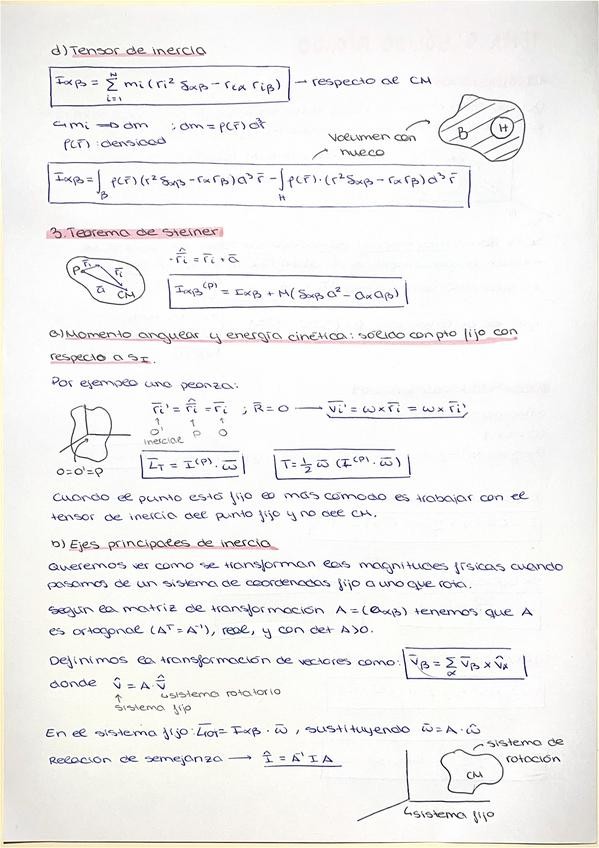 d) Tensor de inercia
I̅αβ = Σ_{i=1}^{N} mi (ri² δαβ − riα riβ) → respecto al CM
↳ mi ⟹ dm ; dm = ρ(r̅) d³r̅
ρ(r̅): densidad
Volumen con hueco
B H
I̅αβ = ∫_B ρ(r̅) (r² δαβ − rα rβ) d³r̅ − ∫_H ρ(r̅)·(r² δαβ − rα rβ) d³r̅
3. Teorema de Steiner
P r̂i r̅i a̅ CM
· r̅̂i = r̅i + a̅
Iαβ^(P) = Iαβ + M (δαβ a² − aα aβ)
a) Momento angular y energía cinética: sólido con pto fijo con
respecto a SI.
Por ejemplo una peonza:
r̅i' = r̅̂i = r̅i ; R̅ = 0 ⟶ v̅i' = ω × r̅i = ω × r̅i'
↑ ↑ ↑
O' P O
inercial
O=O'=P
L̅T = I^(P) · ω̅
T = ½ ω̅ (I^(P) · ω̅)
Cuando el punto está fijo lo más cómodo es trabajar con el
tensor de inercia del punto fijo y no del CM.
b) Ejes principales de inercia
Queremos ver como se transforman las magnitudes físicas cuando
pasamos de un sistema de coordenadas fijo a uno que rota.
Según la matriz de transformación A = (aαβ) tenemos que A
es ortogonal (Aᵀ = A⁻¹), real, y con det A > 0.
Definimos la transformación de vectores como: v̅β = Σ_α v̅β × v̂α
donde v̂ = A · v̅̂
↳ sistema rotatorio
↑
sistema fijo
En el sistema fijo: L̅TOT = Iαβ · ω̅, sustituyendo ω̅ = A · ω̂
Relación de semejanza ⟶ Î = A⁻¹ I A
sistema de
rotación
CM
↳ sistema fijo